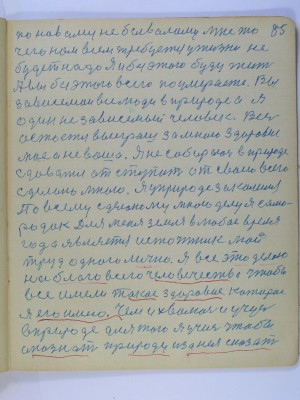 по новому не бывалому мне то 85
чего нам всем требуется у жизни не
будет надо Я и без этого буду жить
А вы без этого всего поумираете. Вы
зависимой все люди в природе а я
один не зависимый человек.
астоется выиграш за мною Здоровье
мое а не ваше. Я не собираюсь в природе
сдаваться отступать от своего всего
сделано мною. Я у природе закалился
По всему сделаному мною делу я само-
родак Для меня земля в любое время
года является источник мой
труд одного лично. Я все это делаю
на благо всего человечества чтобы
все имели такое здоровье каторое
я его имею. Чем и хвалюсь и учусь
в природе для того я учусь чтобы
апазнать природу и за нея сказать